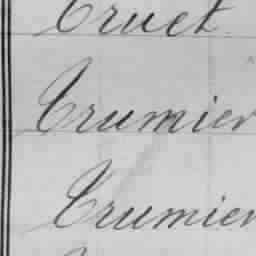 Cruet
Crumier
Crumier